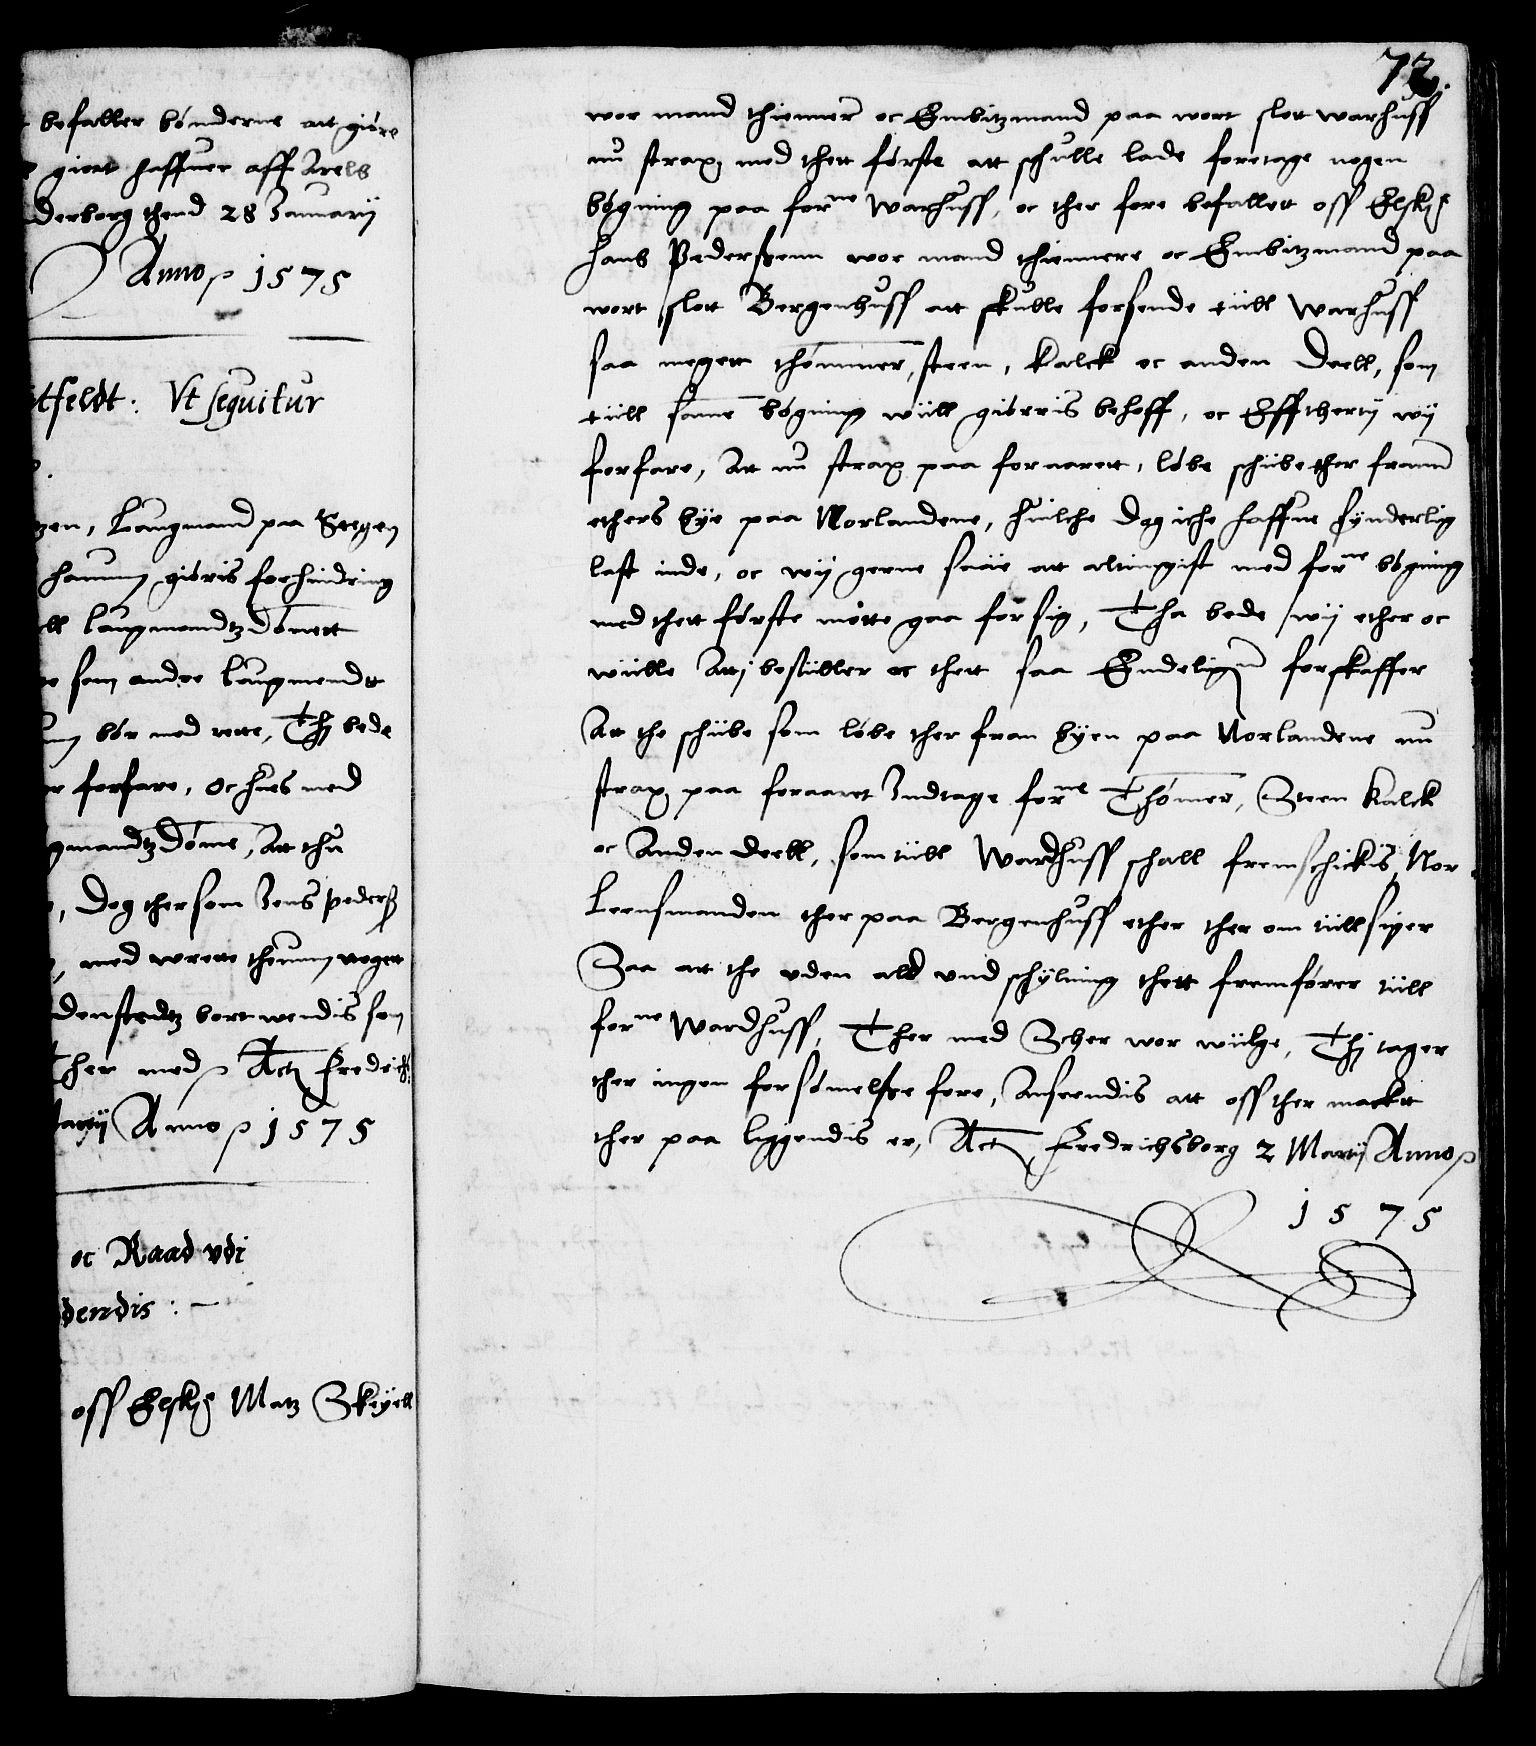 befaller bønderne att giøre
giort haffuer aff Arels
derborg thend 28 Januarij
Anno p 1575
tfeldt: Vt sequitur
tzen, Laugmand paa Stegen
hannum giöris forhindring
ll laugmandtz Dömett
som andre laugmendt
bör med rette, Thj bede
r forfare, oc hues med
gmandtz Döme, Att thu
, Dog thersom Jens pederß
, med wrette thennum noget
denstedtz bort wendis som
Ther med p Actz Fredrichß:
artij Anno p 1575
oc Raad vdi
dendis : —
oss Elskë Matz Skeÿell
72.
wor mand thienner oc Embitzmand paa wort slott warhuss
nu strax med thett förste att schulle lade foretage nogen
bögning paa forne Warhuss, oc ther fore befallett oss Elskë
Hans Pederssenn wor mand thiennere oc Embitzmand paa
wort slott Bergenhuss att skulle forsende tiill Warhuss
saa megett thömmer, steen, kalck oc anden Deell, som
tiill samme bögning wiill giörris behoff, oc Effttherty wÿ
forfare, Att nu strax paa foraarett, löbe schiibe ther framm
ethers bÿe paa Norlandene, huilche Dog iche haffue sÿnderlig
last inde, oc wÿ gerne saaie att altingist med forne bögning
med thett förste motte gaa for sig, Tha bede wÿ ether oc
wiille Attj bestiiller oc thett saa Endeligen forskaffer
Att the schiibe som löbe ther fran bÿen paa Norlandene nu
strax paa foraaret Indtage forne Thömer, Steen kalck
oc Anden deell, som tiill Wardhuss schall fremschickis Nor
Leensmanden ther paa Bergenhuss ether ther om tiill siger
Saa att the vden ald vndschÿlning thett fremförer tiill
forne Wardhuss, Ther med Scher wor wiilge, Thj tager
ther ingen forsömelsse fore, Anseendis att oss ther macktt
ther paa liggendis er, Actz Fredrichsborg 2 Martij Anno p
1575